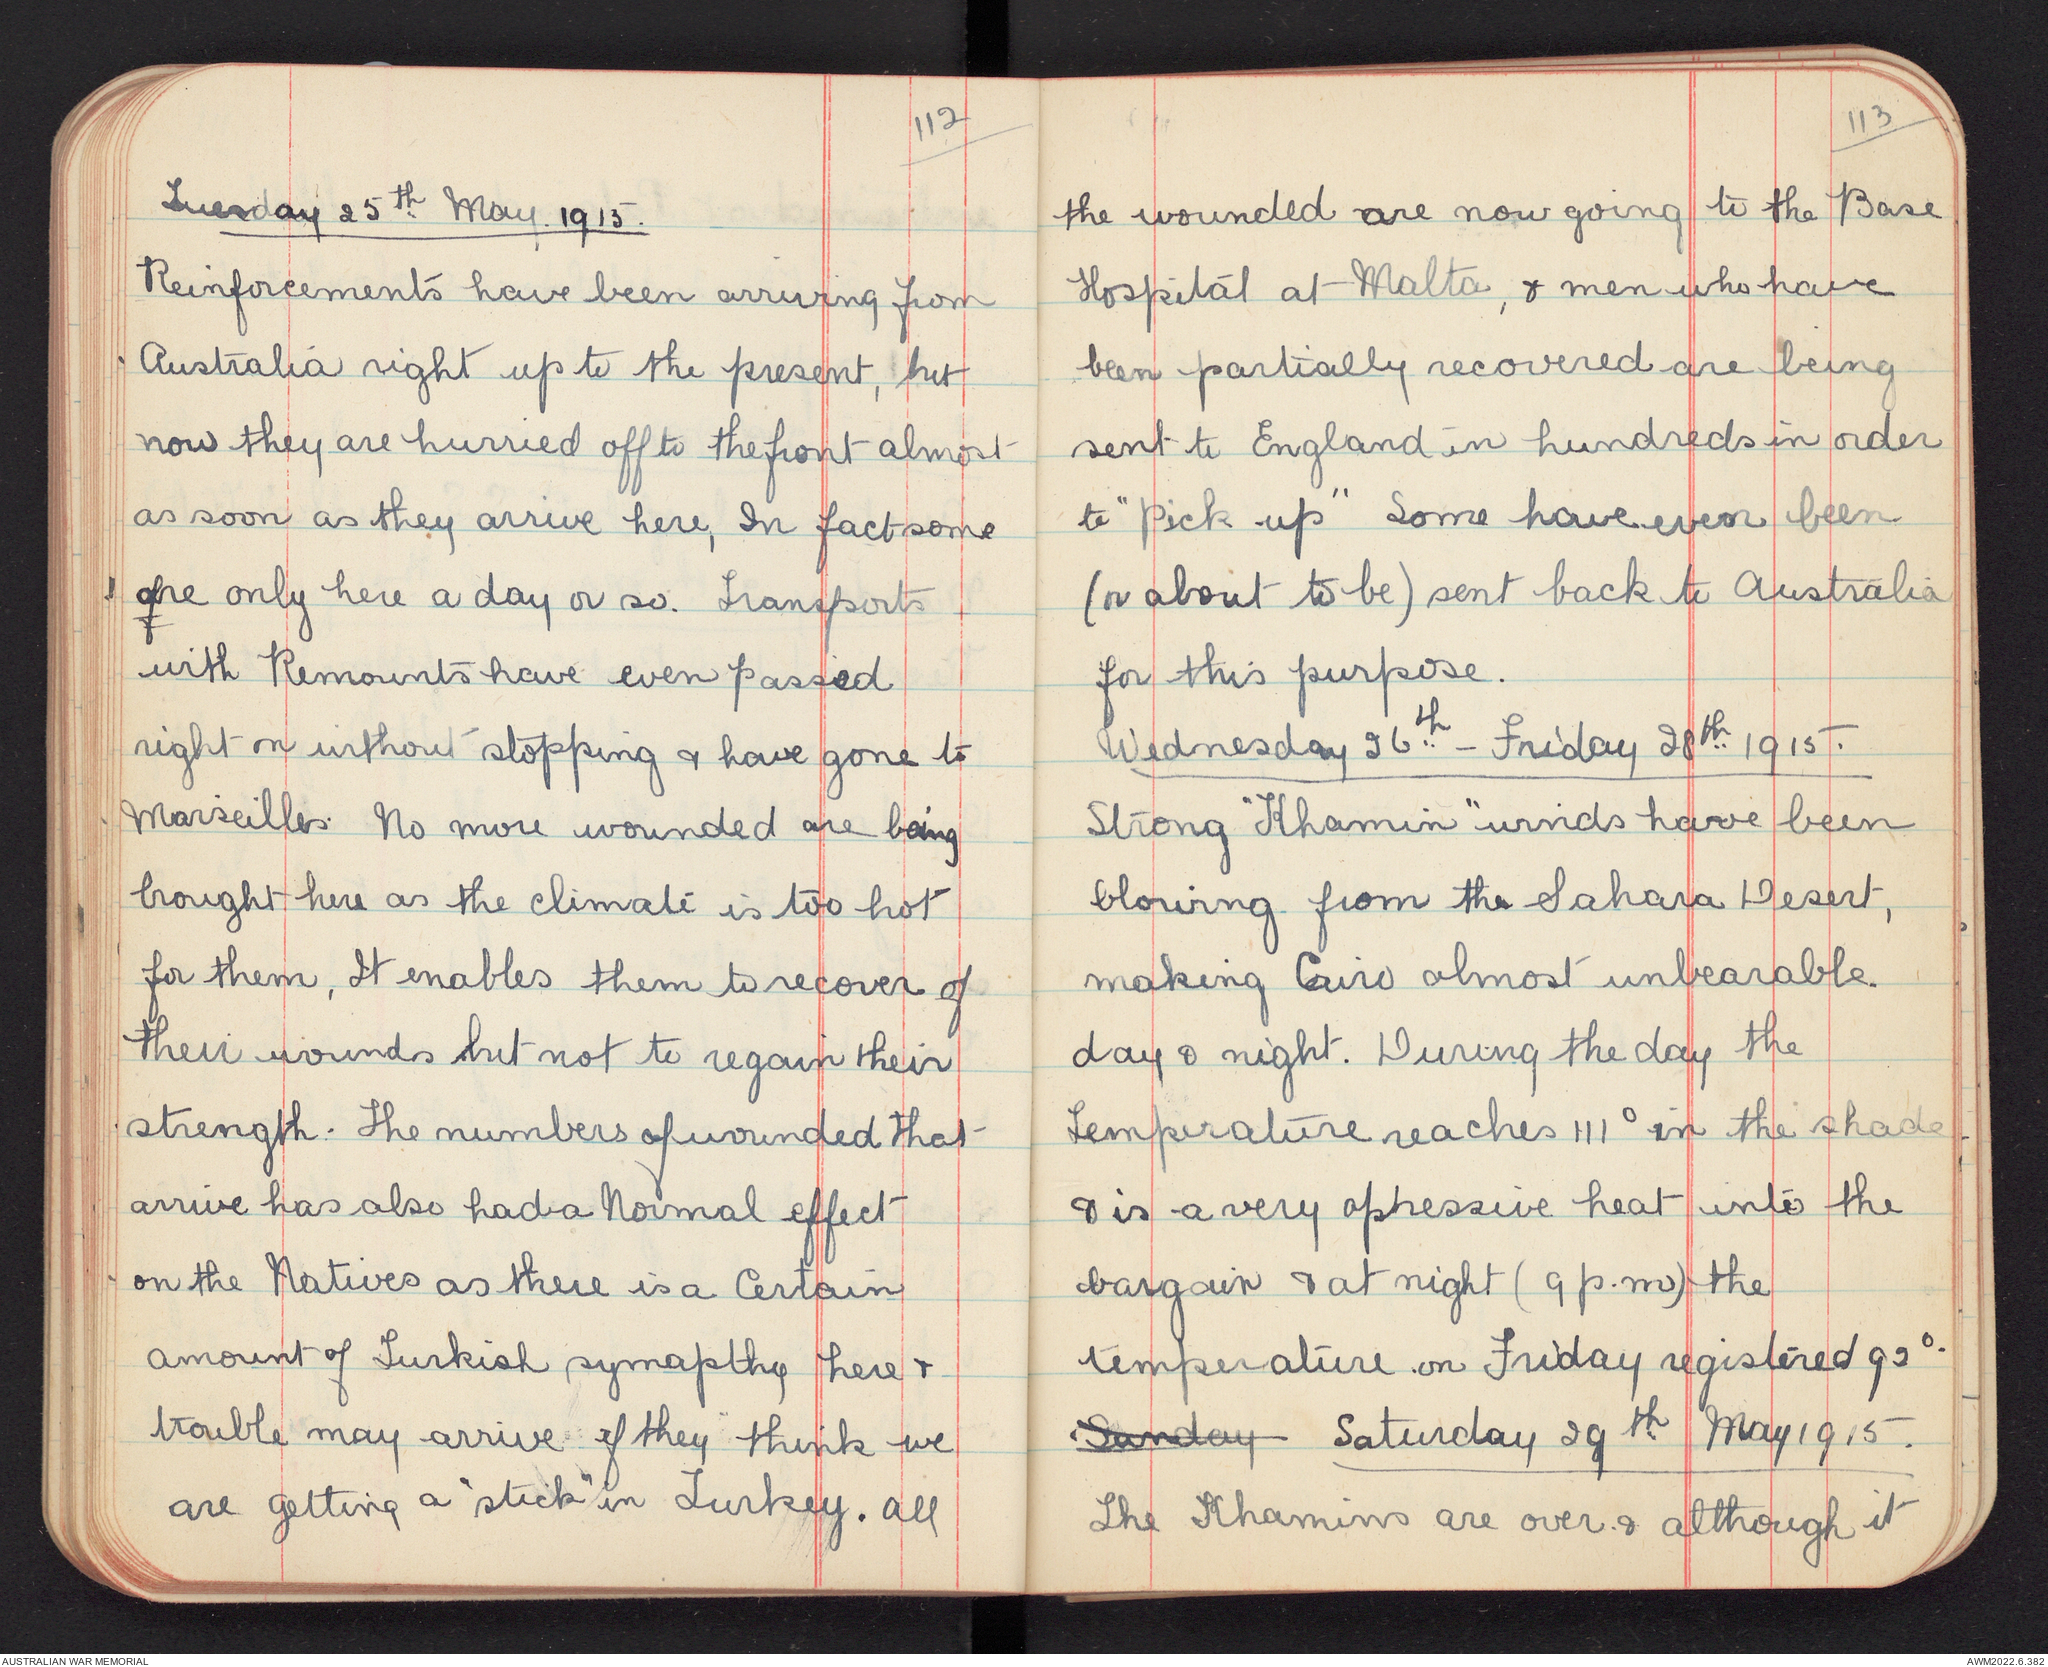 112
Tuesday 25th May. 1915.
Reinforcements have been arriving from
Australia right up to the present, but
now they are hurried off to the front almost
as soon as they arrive here, In fact some
are only here a day or so. Transports
with Remounts have even passed
right on without stopping & have gone to
Marseilles. No more wounded are being
brought here as the climate is too hot
for them, It enables them to recover of
their wounds but not to regain their
strength. The numbers of wounded that
arrive has also had a Normal effect
on the Natives as there is a Certain
amount of Turkish symapthy here &
trouble may arrive if they think we
are getting a "stick" in Turkey. All
113
the wounded are now going to the Base
Hospital at Malta, & men who have
been partially recovered are being
sent to England in hundreds in order
to "pick up" Some have even been
(or about to be) sent back to Australia
for this purpose.
Wednesday 26th - Friday 28th 1915.
Strong "Khamin" winds have been
blowing from the Sahara Desert,
making Cairo almost unbearable.
day & night. During the day the
Temperature reaches 111° in the shade
& is a very opressive heat into the
bargain & at night (9 p.m) the
temperature on Friday registered 92°.
Sunday Saturday 29th May 1915.
The Khamins are over & although it
AUSTRALIAN WAR MEMORIAL
AWM2022.6.382